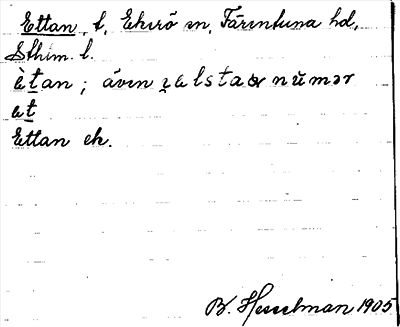 Ettan, t, Ekerö sn, Färentuna hd,
Sthlm. l.
è̀tan; även
nŭmər
et
Ettan ek.
B. Hesselman 1905